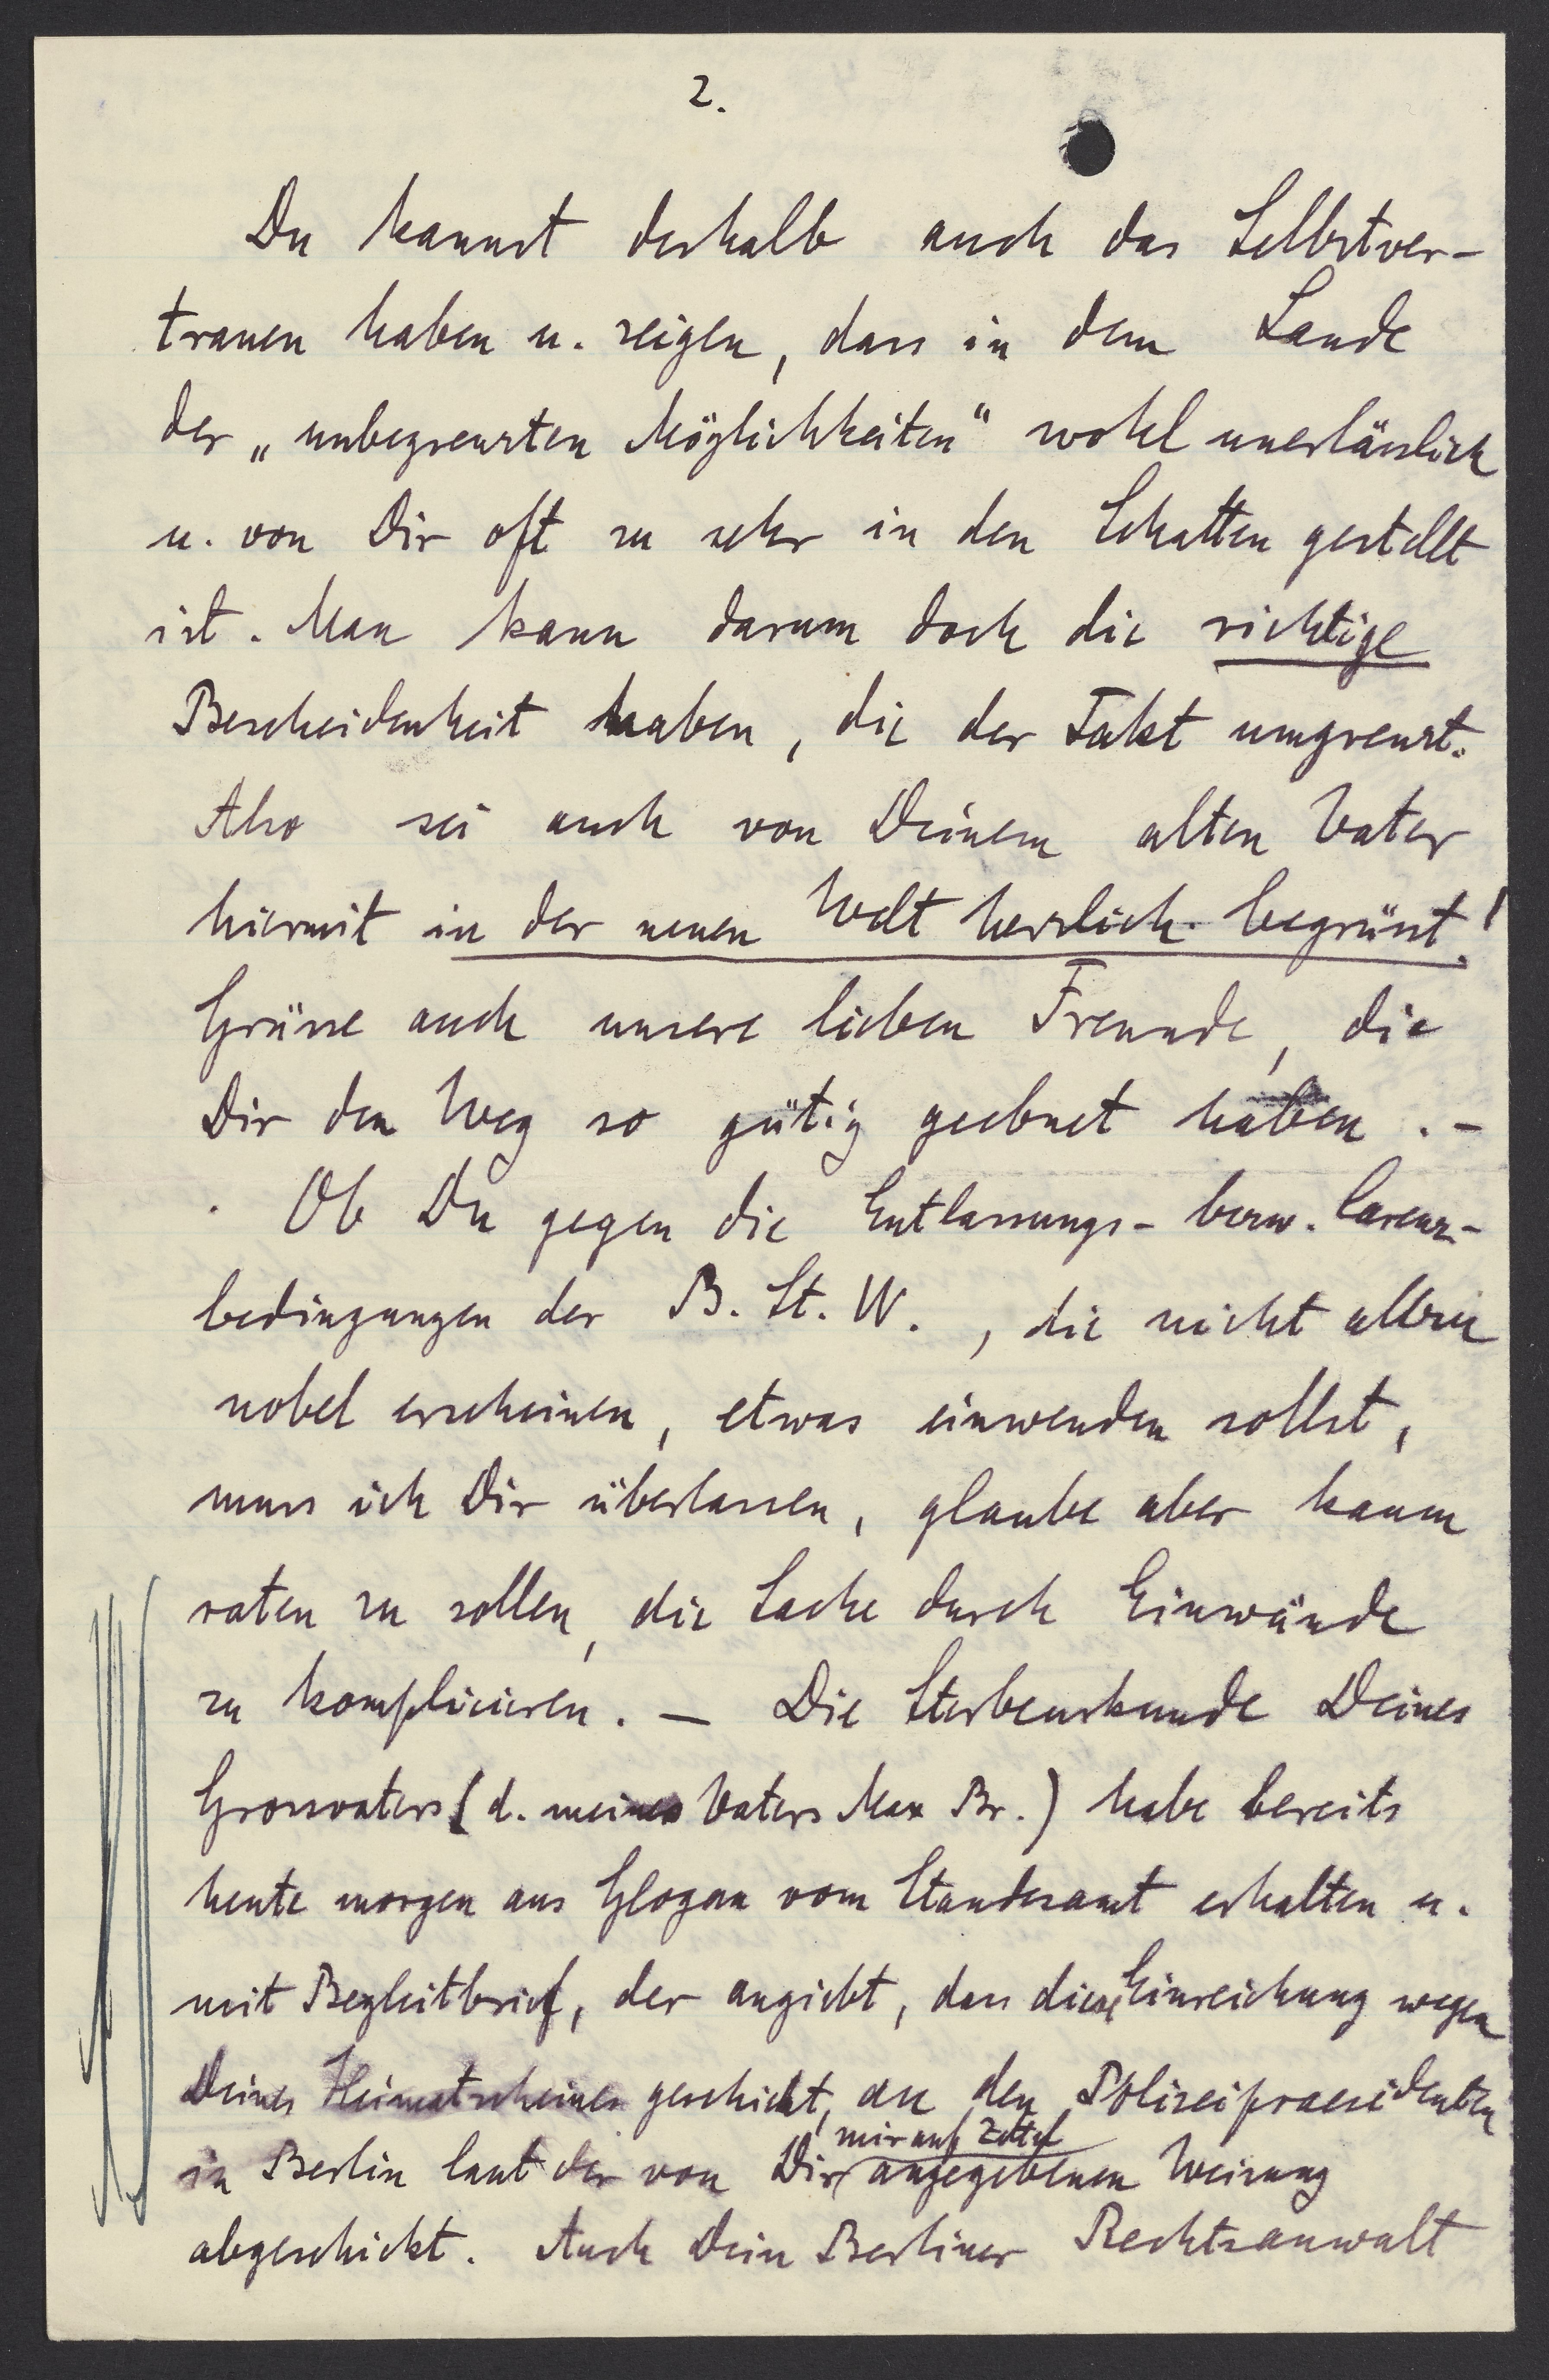 2.
Du kannst deshalb auch das Selbstver-
trauen haben u. zeigen, dass in dem Lande
der „unbegrenzten Möglichkeiten" wohl unerlässlich
u. von Dir oft zu sehr in den Schatten gestellt
ist. Man kann darum doch die richtige
Bescheidenheit haben, die der Takt umgrenzt.
Also sei auch von Deinem alten Vater
hiermit in der neuen Welt herzlich begrüsst!
Grüsse auch unsere lieben Freunde, die
Dir den Weg so gütig geebnet haben. –
Ob Du gegen die Entlassungs- bezw. Carenz-
bedingungen der B. St. W., die nicht allzu
nobel erscheinen, etwas einwenden sollst,
muss ich Dir überlassen, glaube aber kaum
raten zu sollen, die Sache durch Einwände
zu komplicieren. – Die Sterbeurkunde Deines
Grossvaters (d. meines Vaters Max Br.) habe bereits
heute morgen aus Glogau vom Standesamt erhalten u.
mit Begleitbrief, der angiebt, dass diese Einreichung wegen
Deines Heimatscheines geschieht, an den Polizeipraesidenten
mir auf Zettel
in Berlin laut der von Dir angegebenen Weisung
abgeschickt. Auch Dein Berliner Rechtsanwalt